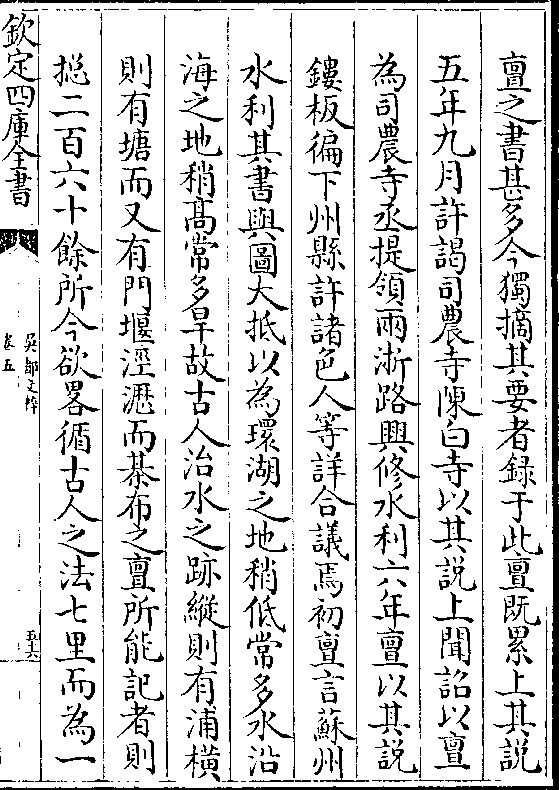 亶之書甚多今獨摘其要者録于此亶既累上其説
五年九月許謁司農寺陳白寺以其説上聞詔以亶
為司農寺丞提領兩浙路興修水利六年亶以其説
鏤板徧下州縣許諸色人等詳合議焉初亶言蘇州
水利其書與圖大抵以為環湖之地稍低常多水沿
海之地稍髙常多旱故古人治水之跡縱則有浦橫
則有塘而又有門堰涇瀝而棊布之亶所能記者則
揔二百六十餘所今欲畧循古人之法七里而為一
欽定四庫全書
吳都文粹
卷五
五六